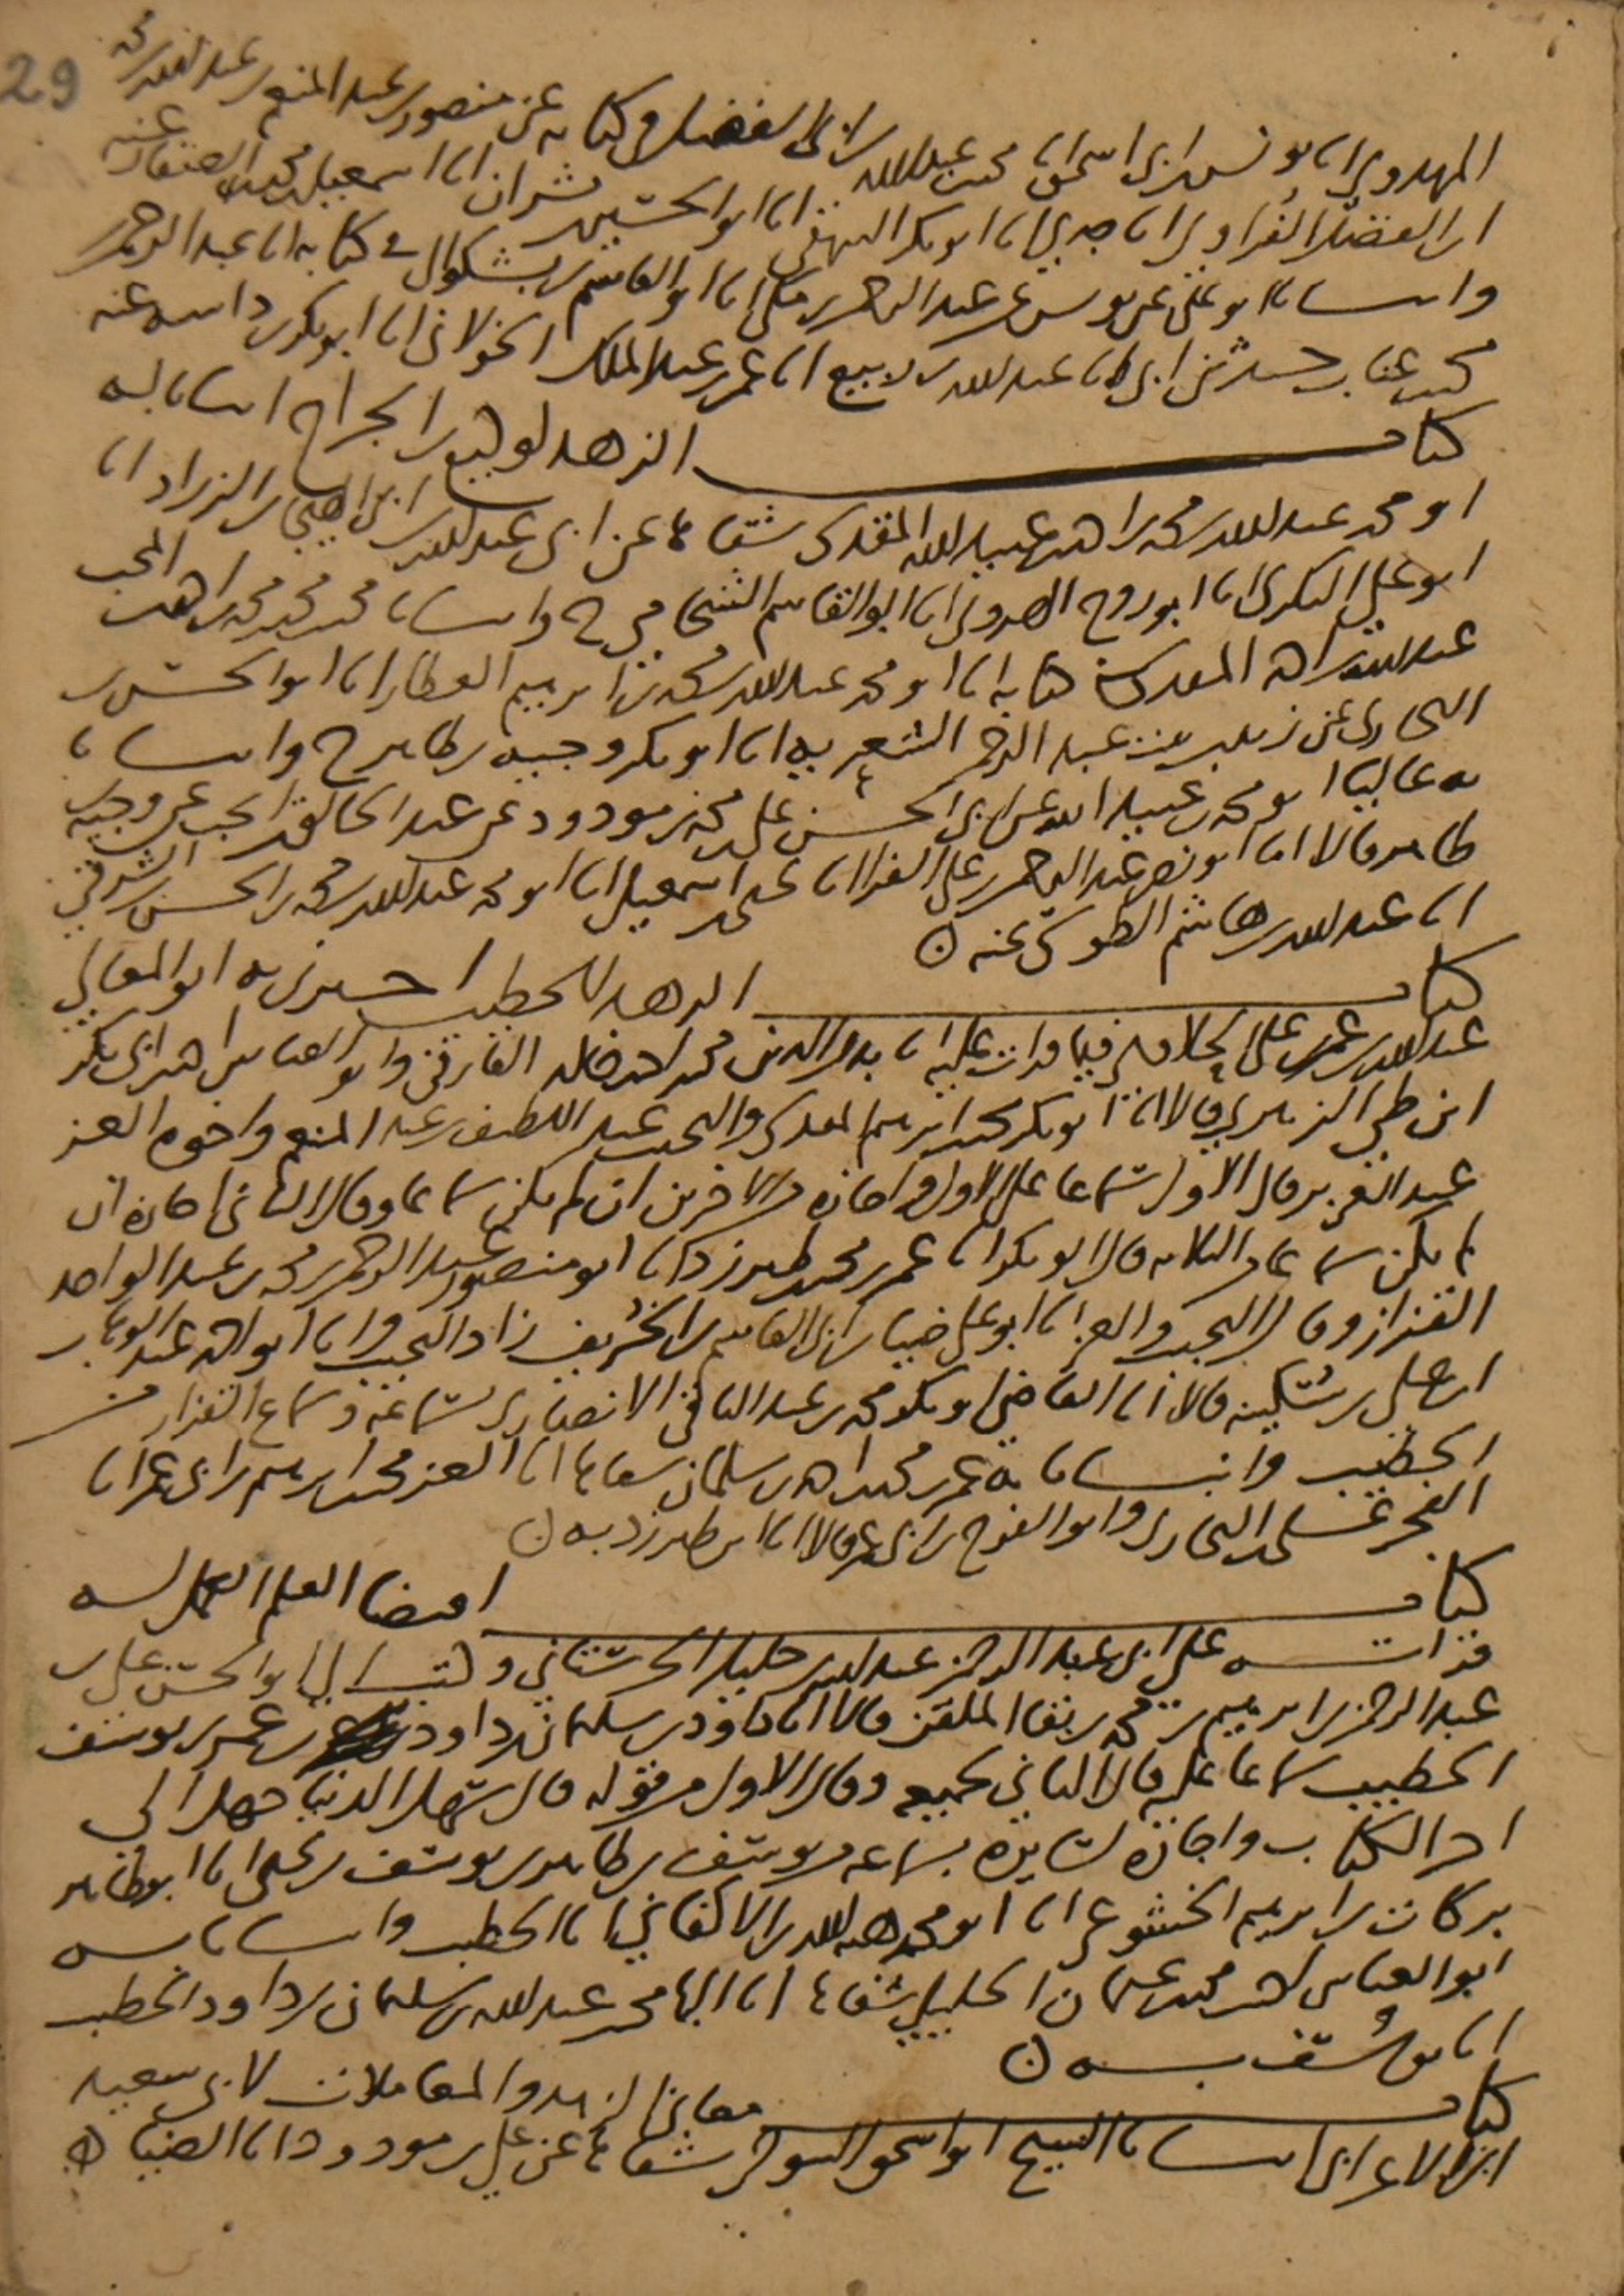 29
المهدوي انا يونس بن ابي اسحق انا محمد بن عبد الله بن ابي الفضل في كتابه عن منصور بن عبد المنعم بن عبد الله بن محمد
ابن الفضل الفراوي انا جدي انا ابو بكر البيهقي انا ابو الحسين بن بشران انا اسمعيل بن محمد الصفار عنه
وانبانا ابو علي عن يونس عن عبد الرحمن بن مكي انا ابو القاسم بن بشكوال في كتابه انا عبد الرحمن بن
محمد بن عتاب حدثني ابي انا عبد الله بن ربيع انا عمر بن عبد الملك الخولاني انا ابو بكر بن داسه عنه
كتاب الزهد لوكيع بن الجراح انبانا به
ابو محمد عبد الله بن محمد بن احمد بن عبيد الله المقدسي شفاها عن ابي عبد الله بن ابي الهيجا بن الزراد انا
ابو علي البكري انا ابو روح الهروي انا ابو القاسم الشحامي ح وانبانا محمد بن محمد بن محمد بن احمد بن المحب
عبد الله بن احمد المقدسي في كتابه انا ابو محمد عبد الله بن محمد بن ابراهيم العطار انا ابو الحسن بن
البخاري عن زينب بنت عبد الرحمن الشعرية انا ابو بكر وجيه بن طاهر ح وانبانا
به عاليا ابو محمد بن عبيد الله عن ابي الحسن علي بن محمد بن مودود عن عبد الخالق بن انجب عن وجيه بن
طاهر قالا انا ابو نصر عبد الرحمن بن علي انا محمد بن اسمعيل انا ابو محمد عبد الله بن محمد بن الحسن بن الشرقي
انا عبد الله بن هاشم الطوسي عنه
كتاب الزهد للخطيب اخبرني به ابو المعالي
عبد الله بن عمر بن علي الحلاوي فيما قرات عليه انا بدر الدين محمد بن احمد بن خالد الفارقي وابو العباس احمد بن ابي بكر
ابن طي الزبيري قالا انا ابو بكر محمد بن ابراهيم المقدسي والنجيب عبد اللطيف بن عبد المنعم واخوه العز
عبد العزيز قال الاول سماعا على الاول واجازة من الاخرين ان لم يكن سماعا وقال الثاني اجازة ان
لم يكن سماعا من الثلاثة قال ابو بكر انا عمر بن محمد بن طبرزد انا ابو منصور عبد الرحمن بن محمد بن عبد الواحد
القزاز وقال النجيب والعز انا ابو علي ضياء بن ابي القاسم بن الخريف زاد النجيب وانا ابو احمد عبد الوهاب بن
علي بن سكينة قالا انا القاضي ابو بكر محمد بن عبد الباقي الانصاري بسماعه وسماع القزاز من
الخطيب وانبانا به عمر بن محمد بن احمد بن سلمان شفاها انا العز محمد بن ابراهيم بن ابي عمر انا
الفخر علي بن احمد البخاري وابو الفرج بن ابي عمر قالا انا ابن طبرزد به
كتاب اقتضا العلم العمل له
قراته على ابي عبد الرحمن عبد الله بن خليل الحرستاني وكتب الي ابو الحسن علي بن
عبد الرحمن بن ابراهيم بن محمد بن بقا الملقن قالا انا داود بن سليمان بن داود بن عمر بن يوسف
الخطيب سماعا عليه قال الثاني لجميعه وقال الاول من قوله قال سهل الدنيا جهل الى
اخر الكتاب واجازة لسايره بسماعه من يوسف بن طاهر بن يوسف بن علي انا ابو طاهر
بركات بن ابراهيم الخشوعي انا ابو محمد هبة الله بن الاكفاني انا الخطيب وانبانا به
ابو العباس احمد بن محمد بن عثمان الخليلي شفاها انا البها محمد بن عبد الله بن سليمان بن داود الخطيب
انا يوسف به
كتاب معاني الزهد والمعاملات لابي سعيد
ابن الاعرابي انبانا الشيخ ابو اسحق التنوخي شفاها عن علي بن مودود انا الضيا